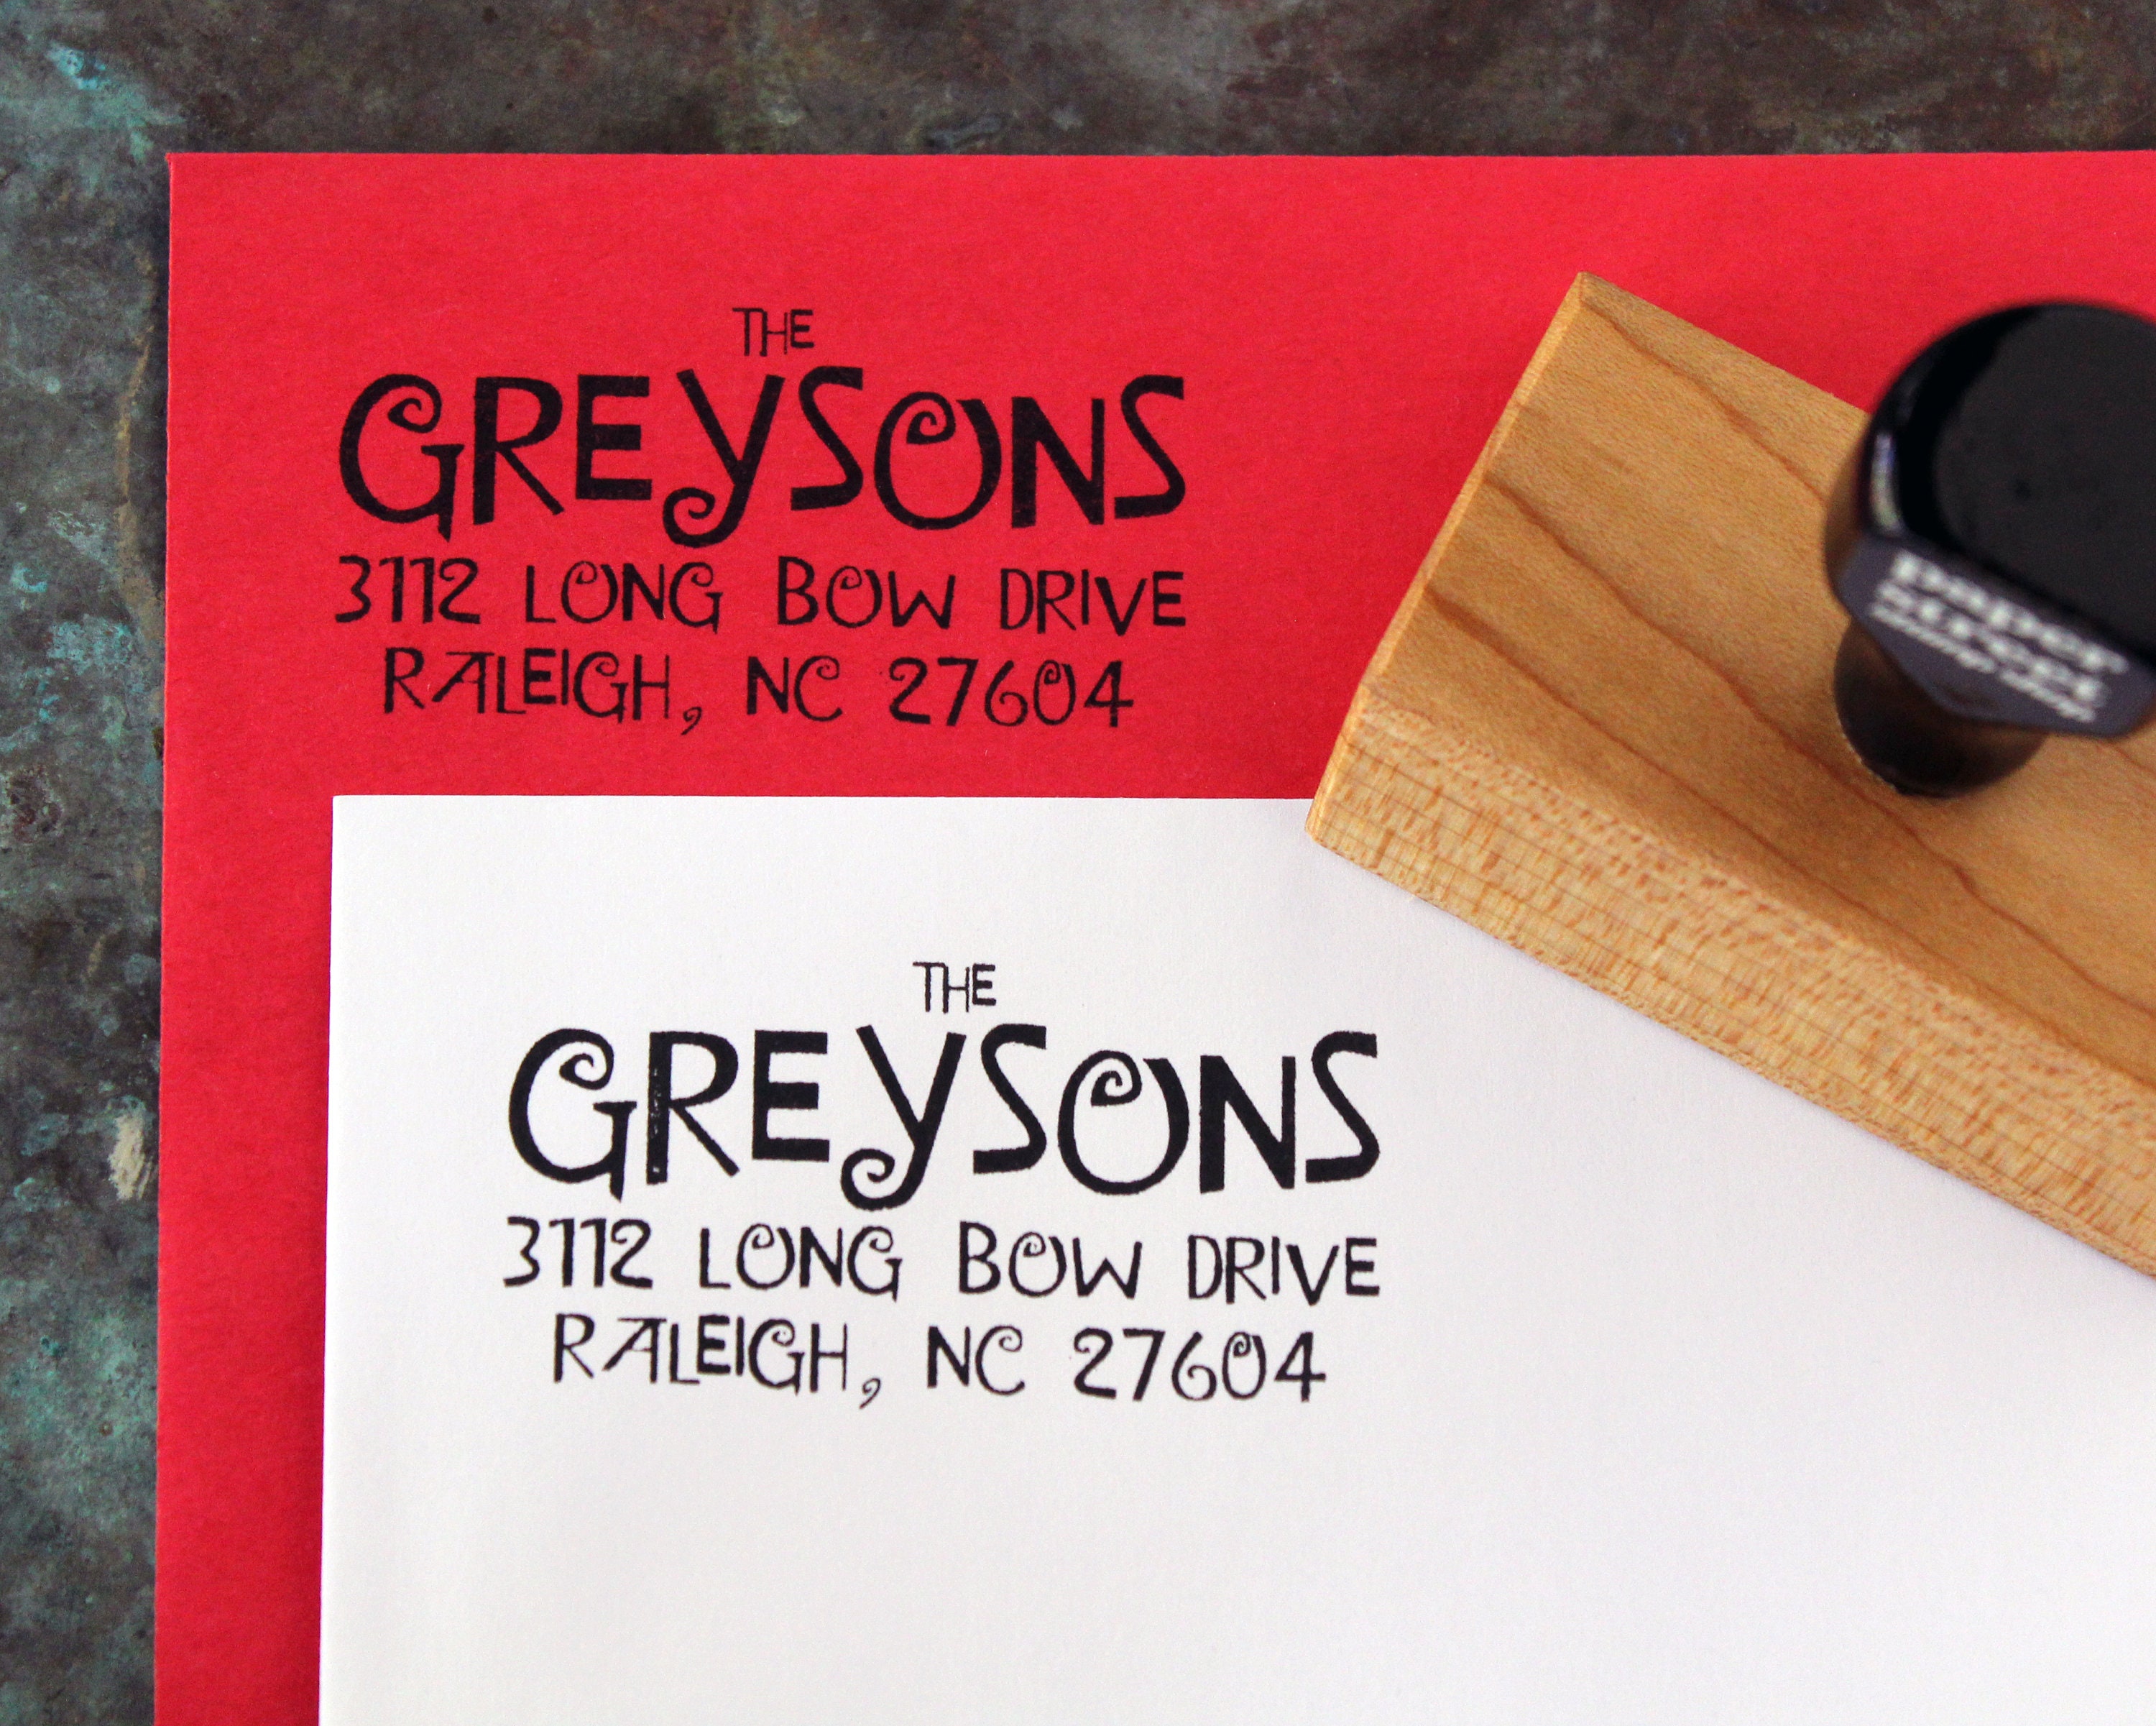 THE
GREYSONS
3112 LONG BOW DRIVE
RALEIGH, NC 27604
paper
street
stamp shop
THE
GREYSONS
3112 LONG BOW DRIVE
RALEIGH, NC 27604